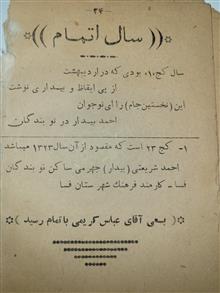 -۳۴-
سال اتمام
سال کج.۱. بودی که در اردیبهشت
از پی ایقاظ و بیداری نوشت
این (نخستین جام) را ای نوجوان
احمد بیدار در نو بندگان
۱- کج ۲۳ است که مقصود از آن سال ۱۳۲۳ میباشد
احمد شریعتی (بیدار) جهرمی ساکن نو بندگان
فسا - کارمند فرهنگ شهرستان فسا
(بسعی آقای عباس کریمی باتمام رسید)